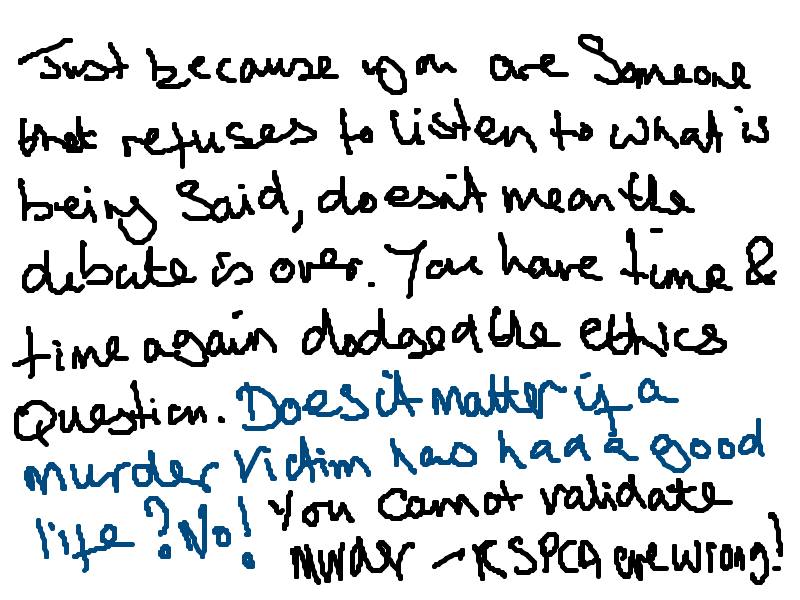 Just because you are Someone
that refuses to listen to what is
being Said, doesn't mean the
debate is over. You have time &
time again dodged the ethics
Question. Does it matter if a
murder victim has had a good
life? No! You cannot validate
murder - RSPCA are wrong!